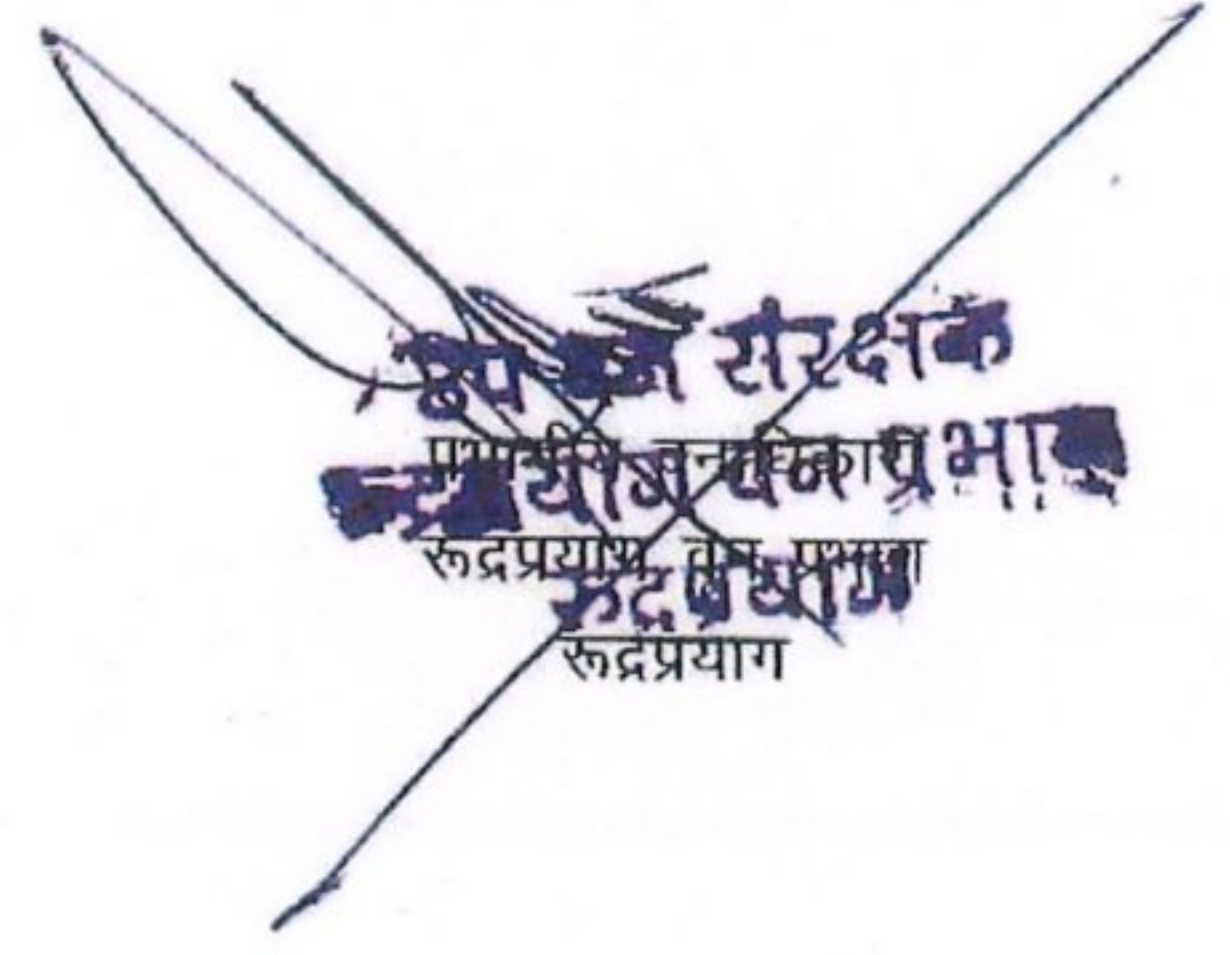 उप वन संरक्षक
प्रभागीय वनाधिकारी
रूद्रप्रयाग वन प्रभाग
रूद्रप्रयाग वन प्रभाग
रूद्रप्रयाग
रूद्रप्रयाग